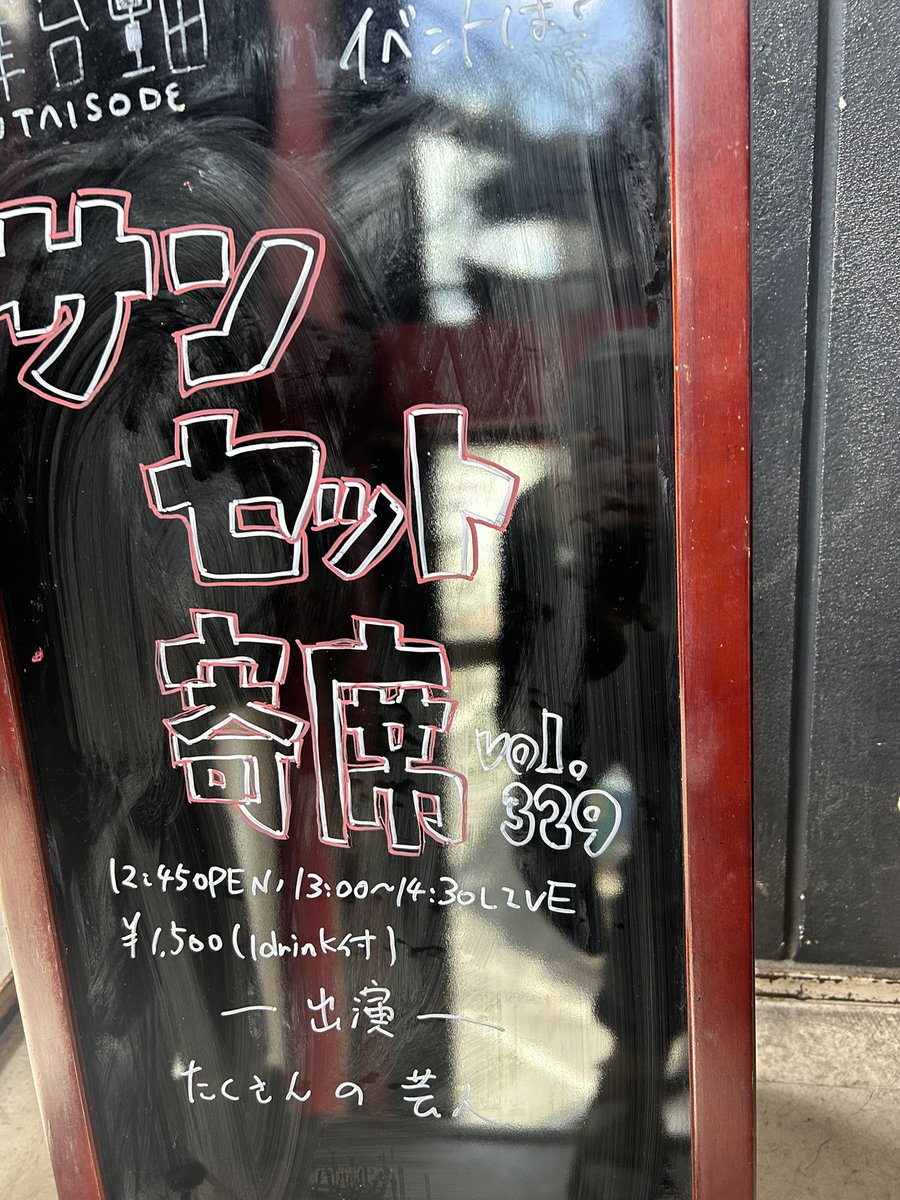 イベントは?
UTAISODE
サン
セット
寄席 vol.
329
12:45OPEN, 13:00~14:30LIVE
¥1,500(1drink付)
— 出演 —
たくさんの芸人